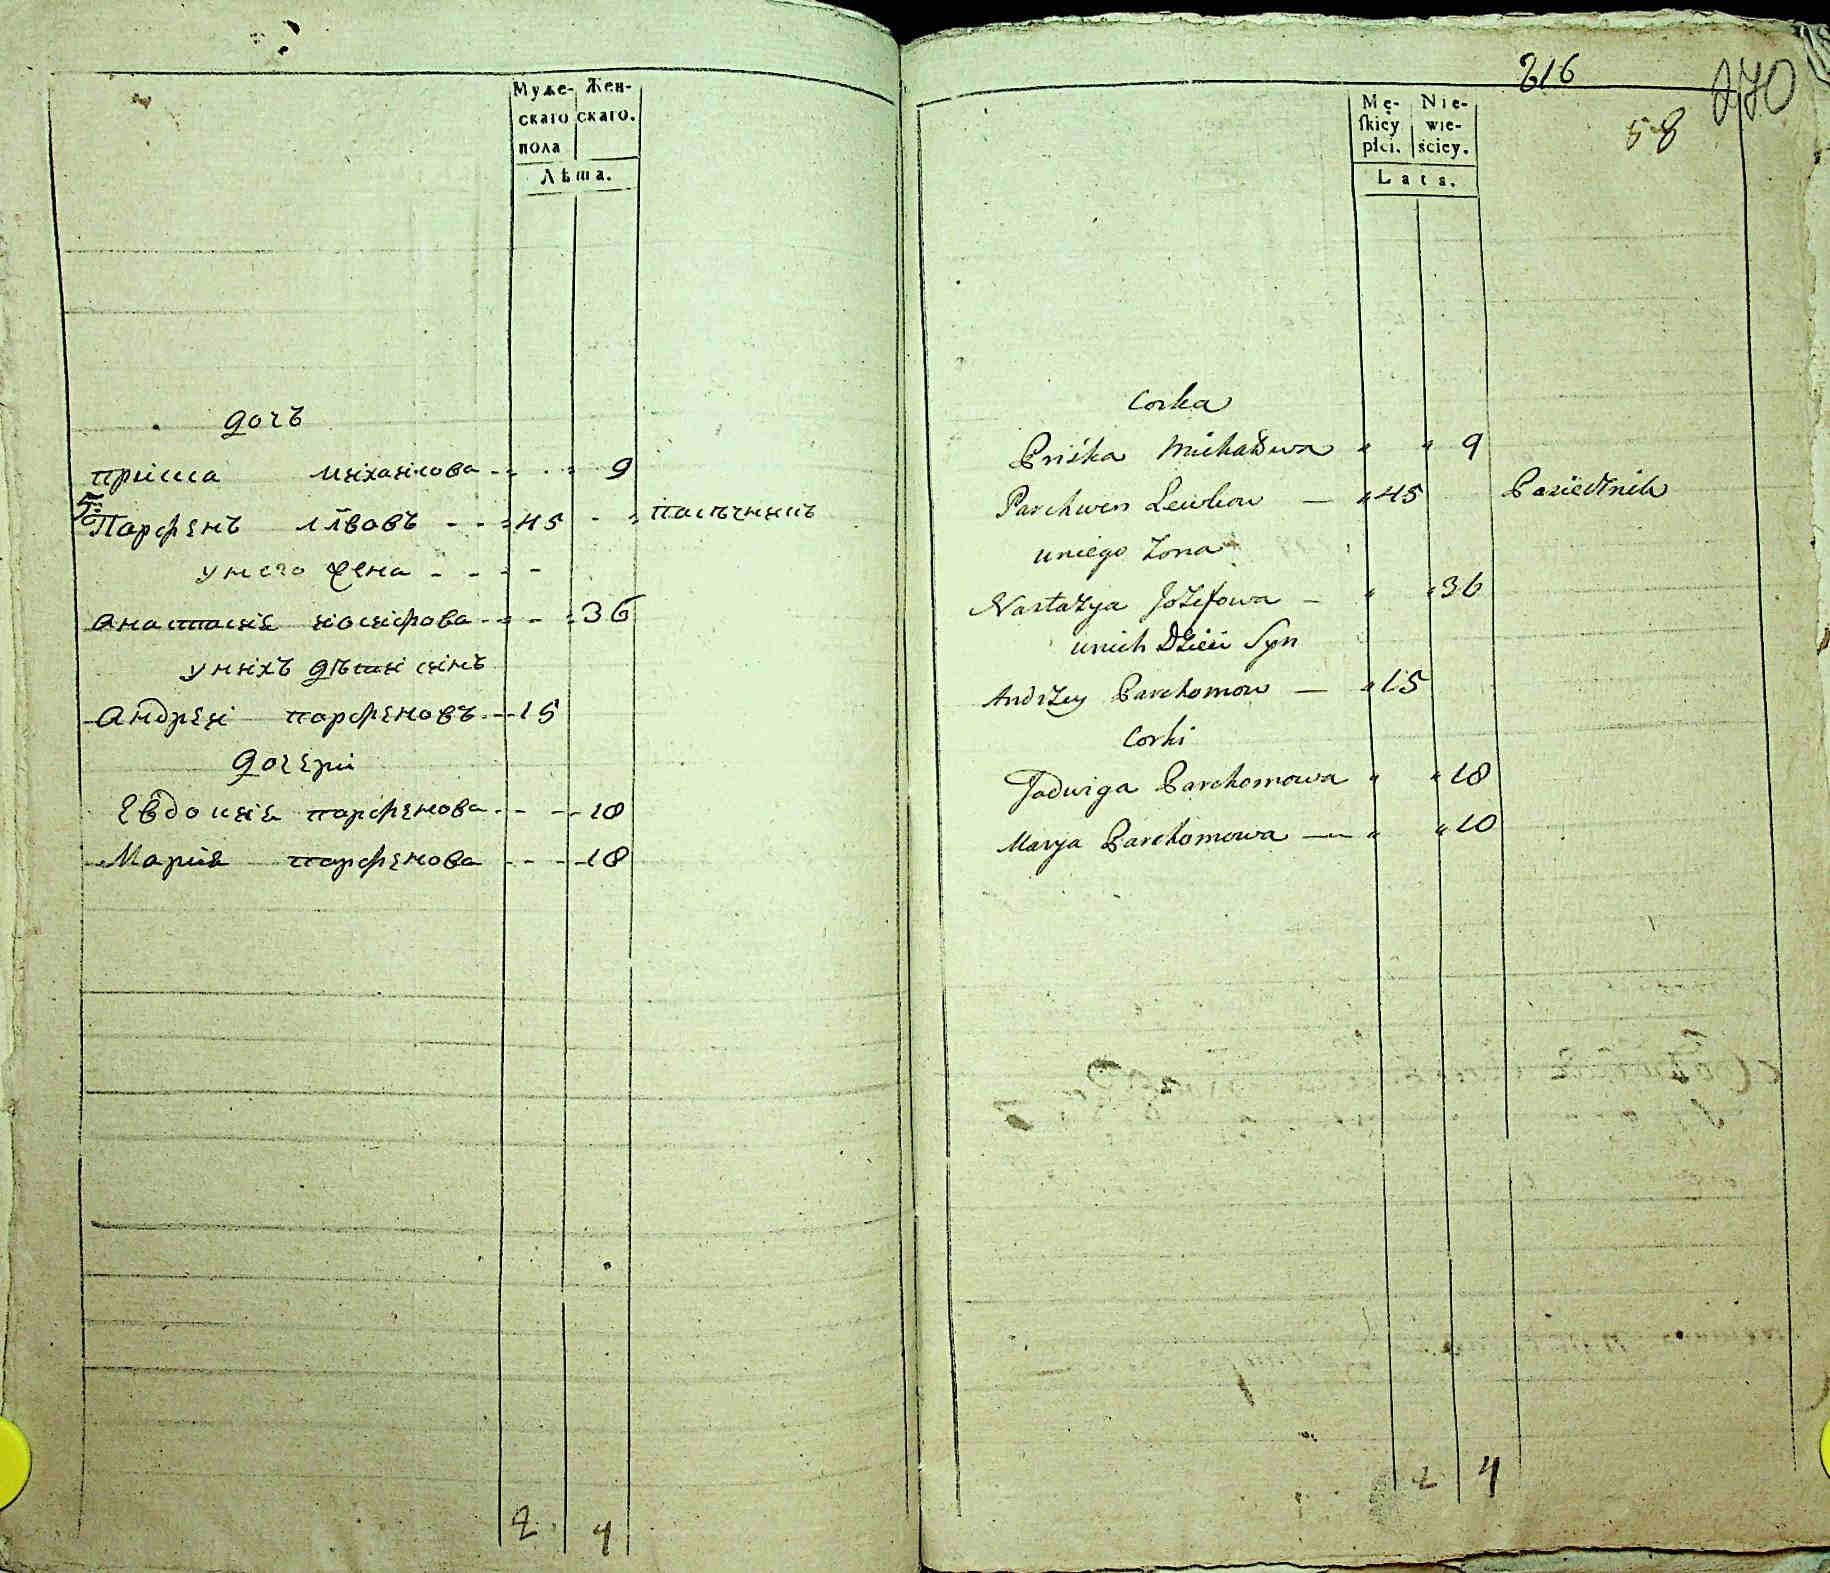 Муже- Жен-
скаго скаго.
пола
Лѣта.
дочъ
приска михаилова 9
5: Парфенъ лвовъ 45 пасѣчникъ
у него жена
анастасия иосифова 36
у нихъ дѣти синъ
Андреи парфеновъ 15
дочери
Евдокия парфенова 18
Мария парфенова 18
2 4
216
270
58
Mę- Nie-
ſkiey wie-
płci. ściey.
Lata.
Corka
Priśka Michałowa " " 9
Parchwen Lewkow — " 45 Pasiecznik
uniego Żona
Nastazya Jozefowa — " " 36
unich Dzieci Syn
Andrzey Parchomow — " 15
Corki
Jadwiga Parchomowa " " 18
Marya Parchomowa — " " 10
2 4